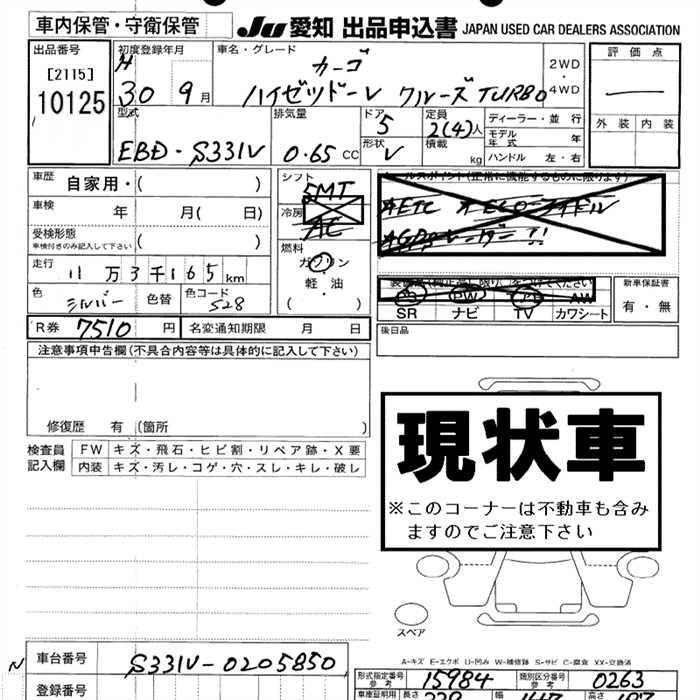 車内保管・守衛保管 JU 愛知 出品申込書 JAPAN USED CAR DEALERS ASSOCIATION
出品番号 初度登録年月 車名・グレード 評価点
[2115] H カーゴ 2WD・
10125 30 9月 ハイゼットドーレ クルーズ TURBO 4WD
型式 排気量 ドア 5 定員 2(4)人 ディーラー・並行 外装 内装
モデル年式 年
EBD-S331V 0.65 CC 形状 V 積載 kg ハンドル 左・右
車歴 自家用・( ) シフト 5MT セールスポイント(正常に機能するものに限ります)
車検 年 月( 日) 冷房 AC オETC
受検形態 車検付きのみ記入して下さい ( )
燃料 ガソリン・軽油・( )
走行 11万3千165km
色 シルバー 色替 色コード S28
PS PW AW 新車保証書
SR ナビ TV カワシート 有・無
R券 7510 円 名変通知期限 月 日 後日品
注意事項申告欄(不具合内容等は具体的に記入して下さい)
修復歴 有 (箇所 )
検査員記入欄 FW キズ・飛石・ヒビ割・リペア跡・X要
内装 キズ・汚レ・コゲ・穴・スレ・キレ・破レ
現状車
※このコーナーは不動車も含みますのでご注意下さい
スペア
A-キズ E-エクボ U-凹み W-補修跡 S-サビ C-腐食 XX-交換済
N 車台番号 S331V-0205850 形式指定番号 参考 15984 類別区分番号 参考 0263
登録番号 車庫証明用 長さ 幅 高さ